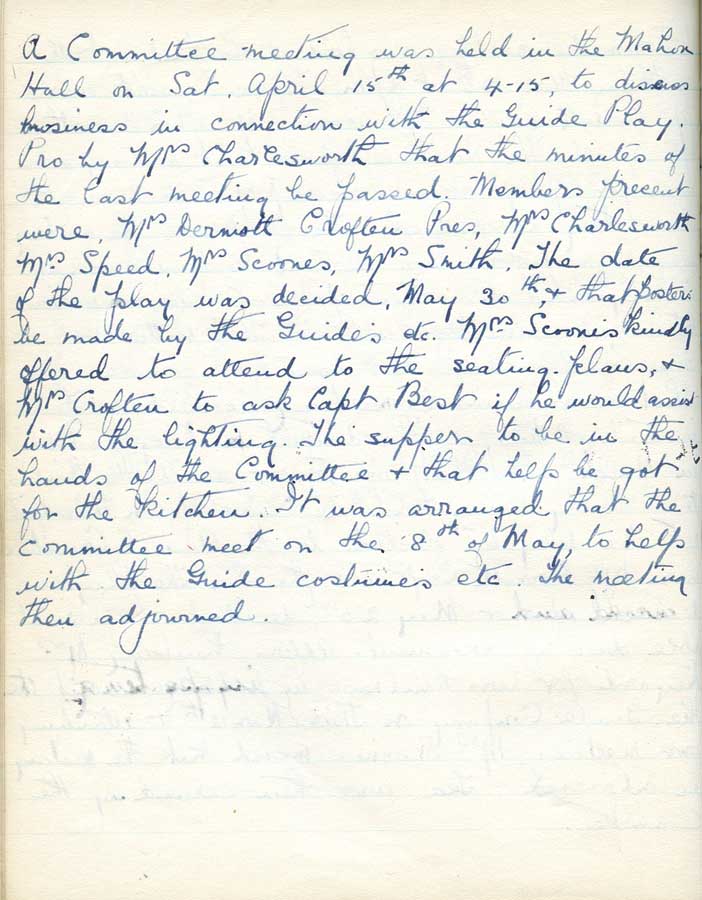 A Committee meeting was held in the Mahon
Hall on Sat. April 15th at 4-15, to discuss
business in connection with the Guide Play.
Pro by Mrs Charlesworth that the minutes of
the last meeting be passed. Members precent
were, Mrs Dermott Crofton Pres, Mrs Charlesworth
Mrs Speed, Mrs Scoones, Mrs Smith. The date
of the play was decided, May 30th, & that posters
be made by the Guides etc. Mrs Scoones kindly
offered to attend to the seating plans, &
Mrs Crofton to ask Capt Best if he would assist
with the lighting. The supper to be in the
hands of the Committee & that help be got
for the kitchen. It was arranged that the
Committee meet on the 8th of May, to help
with the Guide costumes etc The meeting
then adjourned.